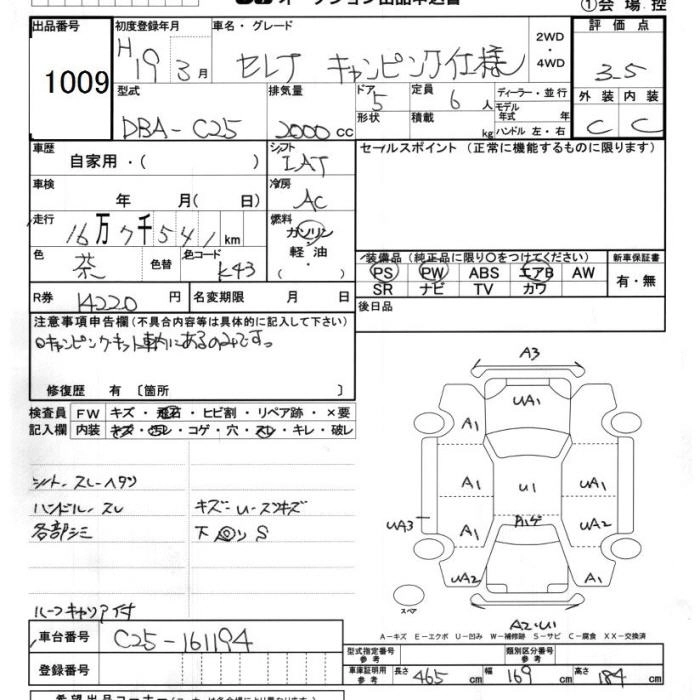 オークション出品申込書
①会 場 控
出品番号 1009
初度登録年月 H19 3月
車名・グレード セレナ キャンピング仕様
2WD・4WD
評価点 3-5
型式 DBA-C25
排気量 2000cc
ドア 5 形状
定員 6人 積載 kg
ディーラー・並行
モデル年式 年
ハンドル 左・右
外装 C 内装 C
車歴 自家用・( )
シフト IAT
セールスポイント (正常に機能するものに限ります)
車検 年 月(日)
冷房 AC
走行 16万7千541km
燃料 ガソリン・軽油・( )
色 茶 色替 色コード K43
装備品(純正品に限り〇をつけてください)
新車保証書
PS PW ABS エアB AW
有・無
SR ナビ TV カワ
R券 14220円 名変期限 月 日
後日品
注意事項申告欄(不具合内容等は具体的に記入して下さい)
○キャンピングキット車内にあるのみです。
修復歴 有 〔箇所 〕
検査員 FW キズ・飛石・ヒビ割・リペア跡・×要
記入欄 内装 キズ・汚レ・コゲ・穴・スレ・キレ・破レ
シート・スレ・ヘタリ
ハンドル・スレ キズ・U・スリキズ
各部シミ 下回り S
ルーフキャリア付
A3
UA1
A1
A1 U1 UA1
UA3 A1 UA2
UA2 A1
スペア
A2・U1
A-キズ E-エクボ U-凹み W-補修跡 S-サビ C-腐食 XX-交換済
車台番号 C25-161194
登録番号
型式指定番号 参考
類別区分番号 参考
車庫証明用 参考 長さ 465cm 幅 169cm 高さ 184cm
希望出品コーナー